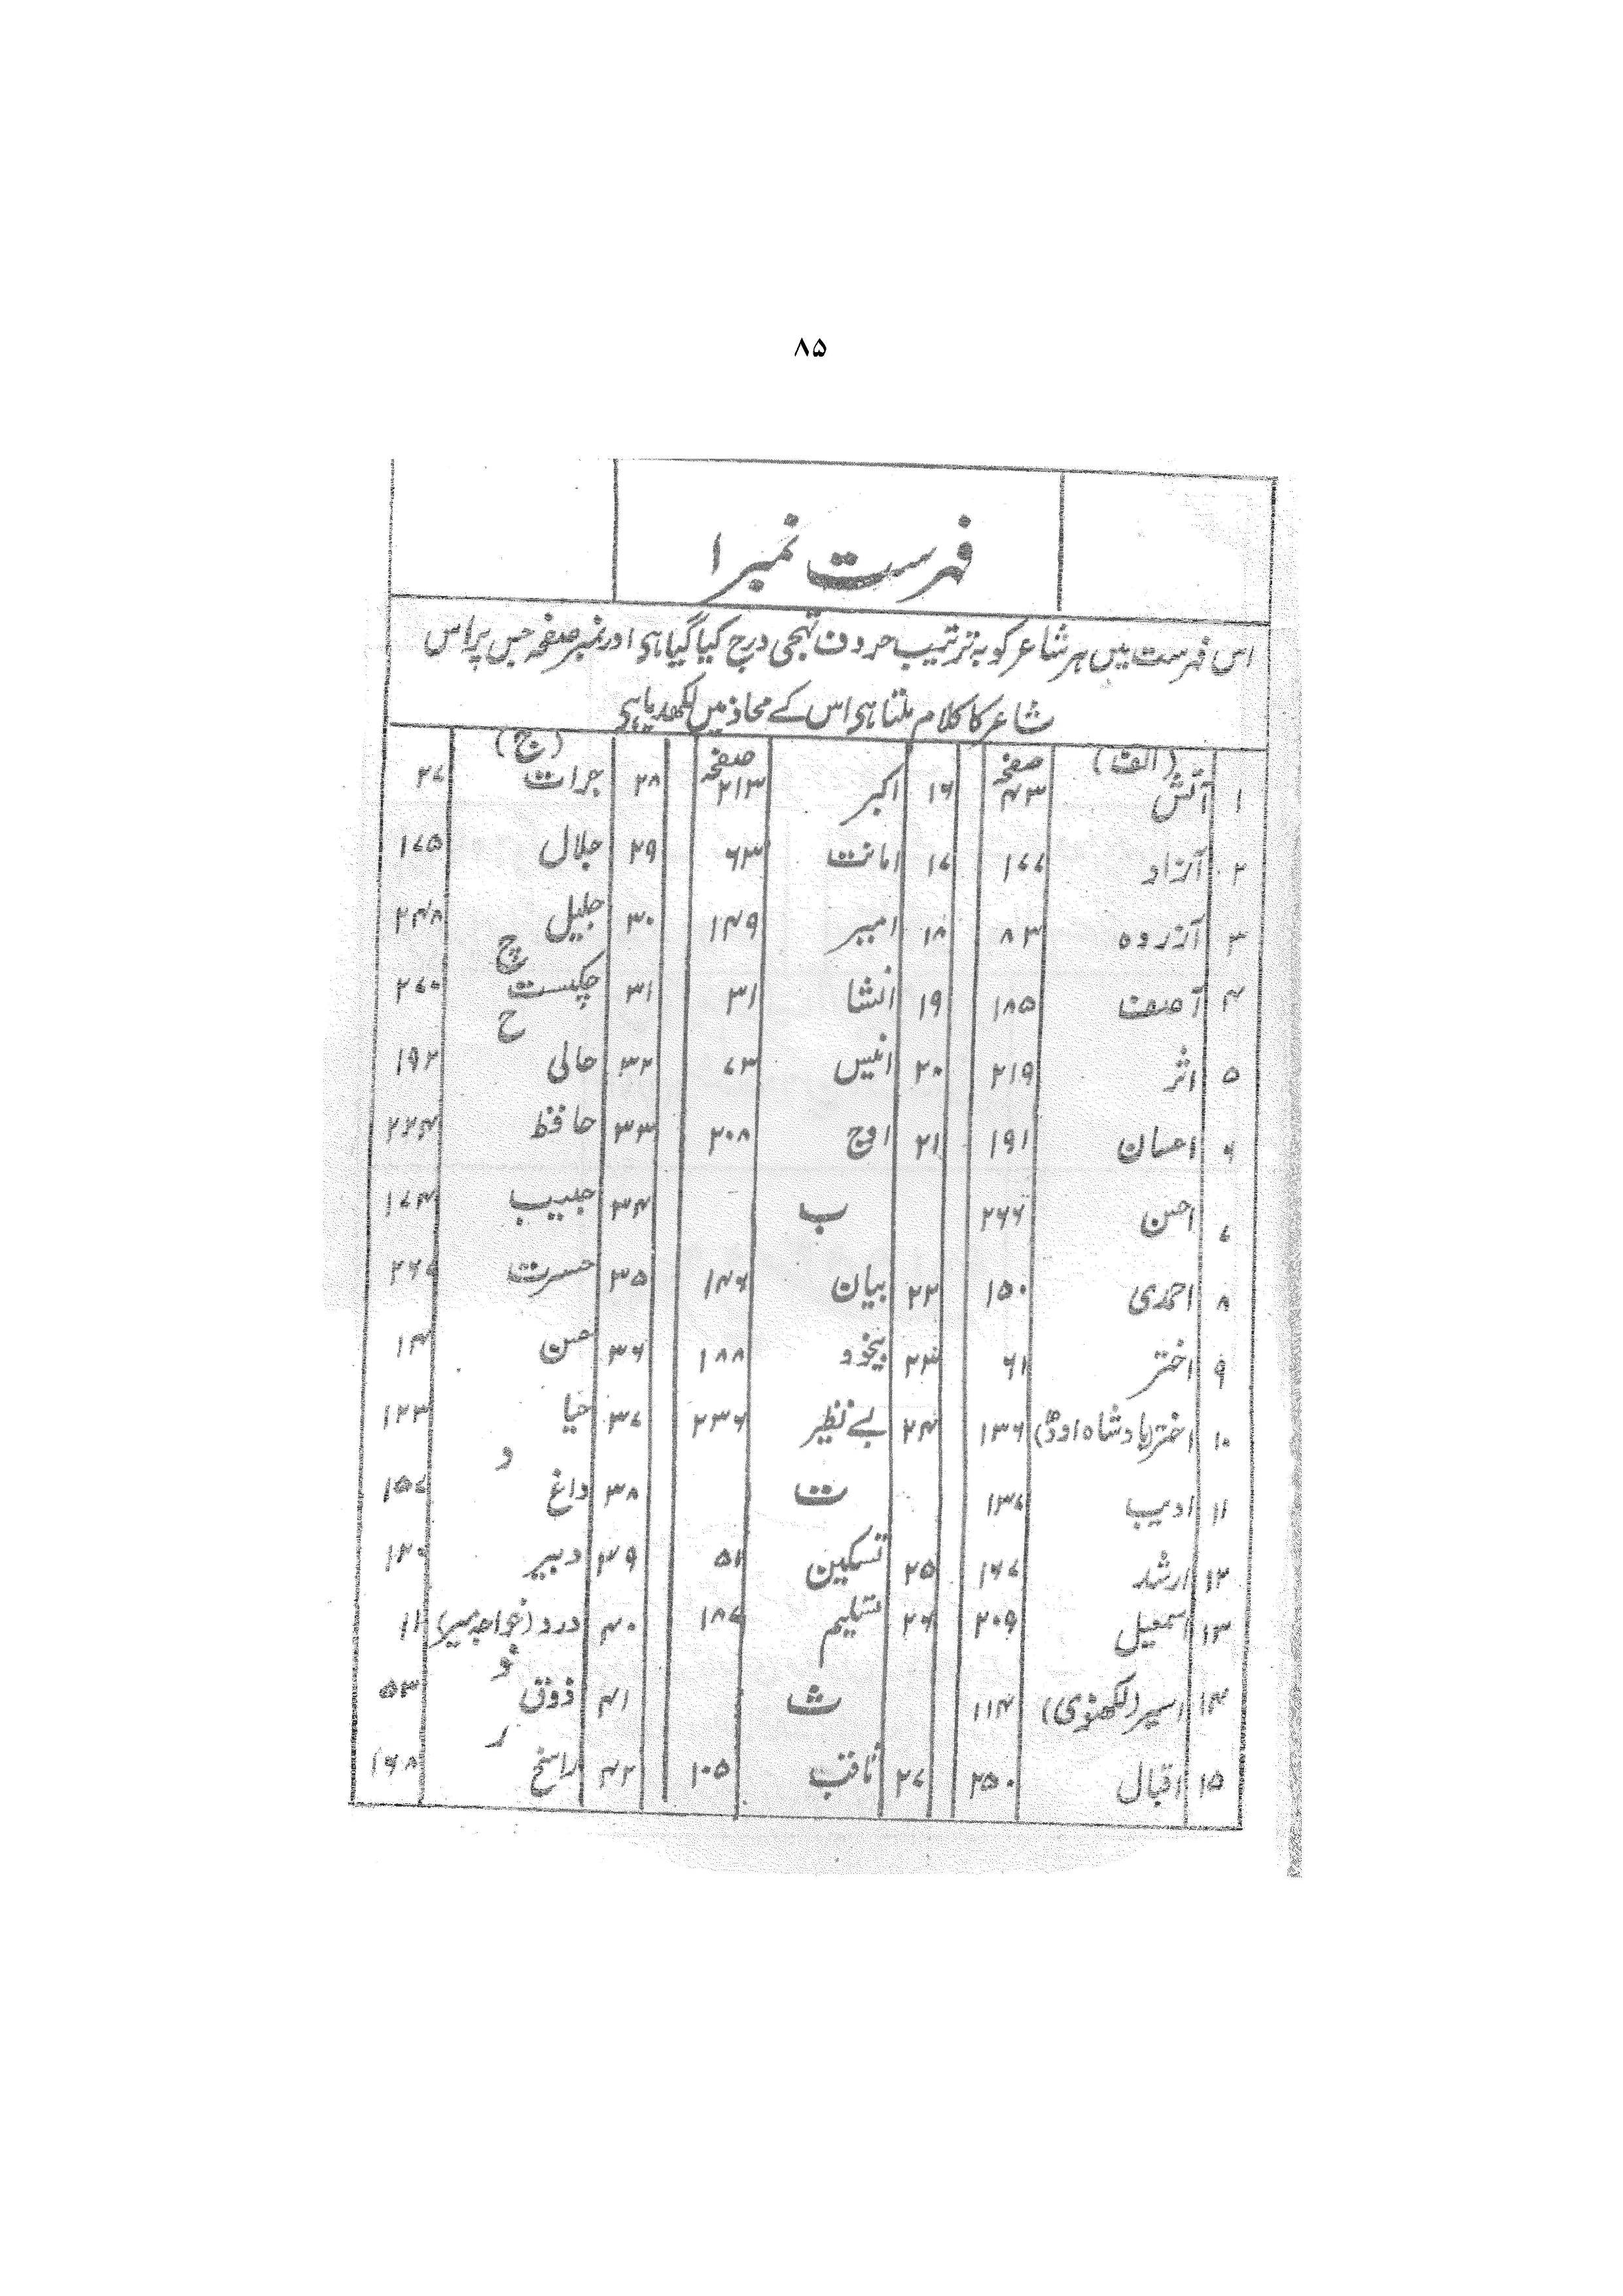 ۸۵
فہرست نمبر ۱
اس فہرست میں ہر شاعر کو بہ ترتیب حروف تہجی درج کیا گیا ہی اور نمبر صفحہ جس پر اس
شاعر کا کلام ملتا ہی اس کے محاذ میں لکھدیا ہی
(الف) صفحہ
۱ آتش ۴۳
۲ آزاد ۱۷۷
۳ آزردہ ۸۳
۴ آصف ۱۸۵
۵ اثر ۲۱۹
۶ احسان ۱۹۱
۷ احسن ۲۶۶
۸ احمدی ۱۵۰
۹ اختر ۶۱
۱۰ اختر (بادشاہ اودھ) ۱۳۶
۱۱ ادیب ۱۳۷
۱۲ ارشد ۱۶۷
۱۳ اسمعیل ۲۰۹
۱۴ اسیر (لکھنوی) ۱۱۴
۱۵ اقبال ۲۵۰
صفحہ
۱۶ اکبر ۲۱۳
۱۷ امانت ۶۳
۱۸ امیر ۱۴۹
۱۹ انشا ۳۱
۲۰ انیس ۷۳
۲۱ اوج ۲۰۸
ب
۲۲ بیان ۱۴۶
۲۳ بیخود ۱۸۸
۲۴ بے نظیر ۲۳۶
ت
۲۵ تسکین ۵۲
۲۶ تسلیم ۱۸۷
ث
۲۷ ثاقب ۱۰۵
(ج)
۲۸ جرات ۲۷
۲۹ جلال ۱۷۵
۳۰ جلیل ۲۴۸
چ
۳۱ چکبست ۲۷۰
ح
۳۲ حالی ۱۹۲
۳۳ حافظ ۲۲۴
۳۴ حبیب ۱۷۴
۳۵ حسرت ۲۶۷
۳۶ حسن ۱۴
۳۷ حیا ۱۲۳
د
۳۸ داغ ۱۵۷
۳۹ دبیر
۴۰ درد (خواجہ میر) ۱۱
ذ
۴۱ ذوق ۵۳
ر
۴۲ راسخ ۱۶۸